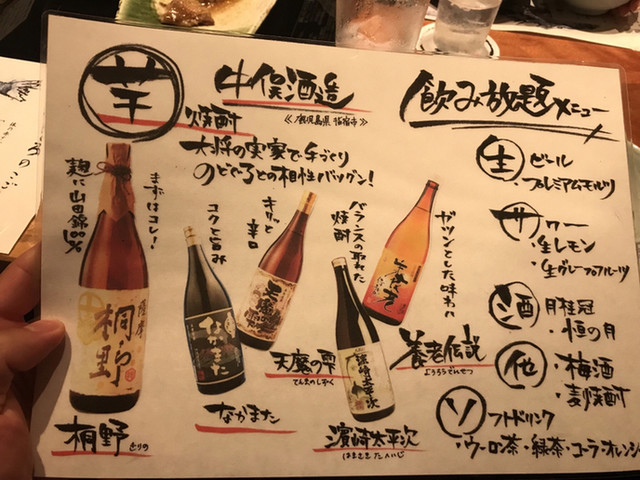 芋
焼酎
中俣酒造
≪鹿児島県 指宿市≫
大将の実家で手づくり
のどぐろとの相性バツグン!
まずはコレ!
麹に山田錦100%
桐野
桐野
きりの
コクと旨み
なかまた
なかまた
キリッと
辛口
天魔の雫
てんまのしずく
バランスの取れた
焼酎
濵崎太平次
濵崎太平次
はまさきたへいじ
ガツンとした味わい
養老伝説
ようろうでんせつ
飲み放題メニュー
生ビール
・プレミアムモルツ
サワー
・生レモン
・生グレープフルーツ
酒 月桂冠
・恒の月
他 ・梅酒
・麦焼酎
ソフトドリンク
・ウーロン茶・緑茶・コーラ・オレンジ